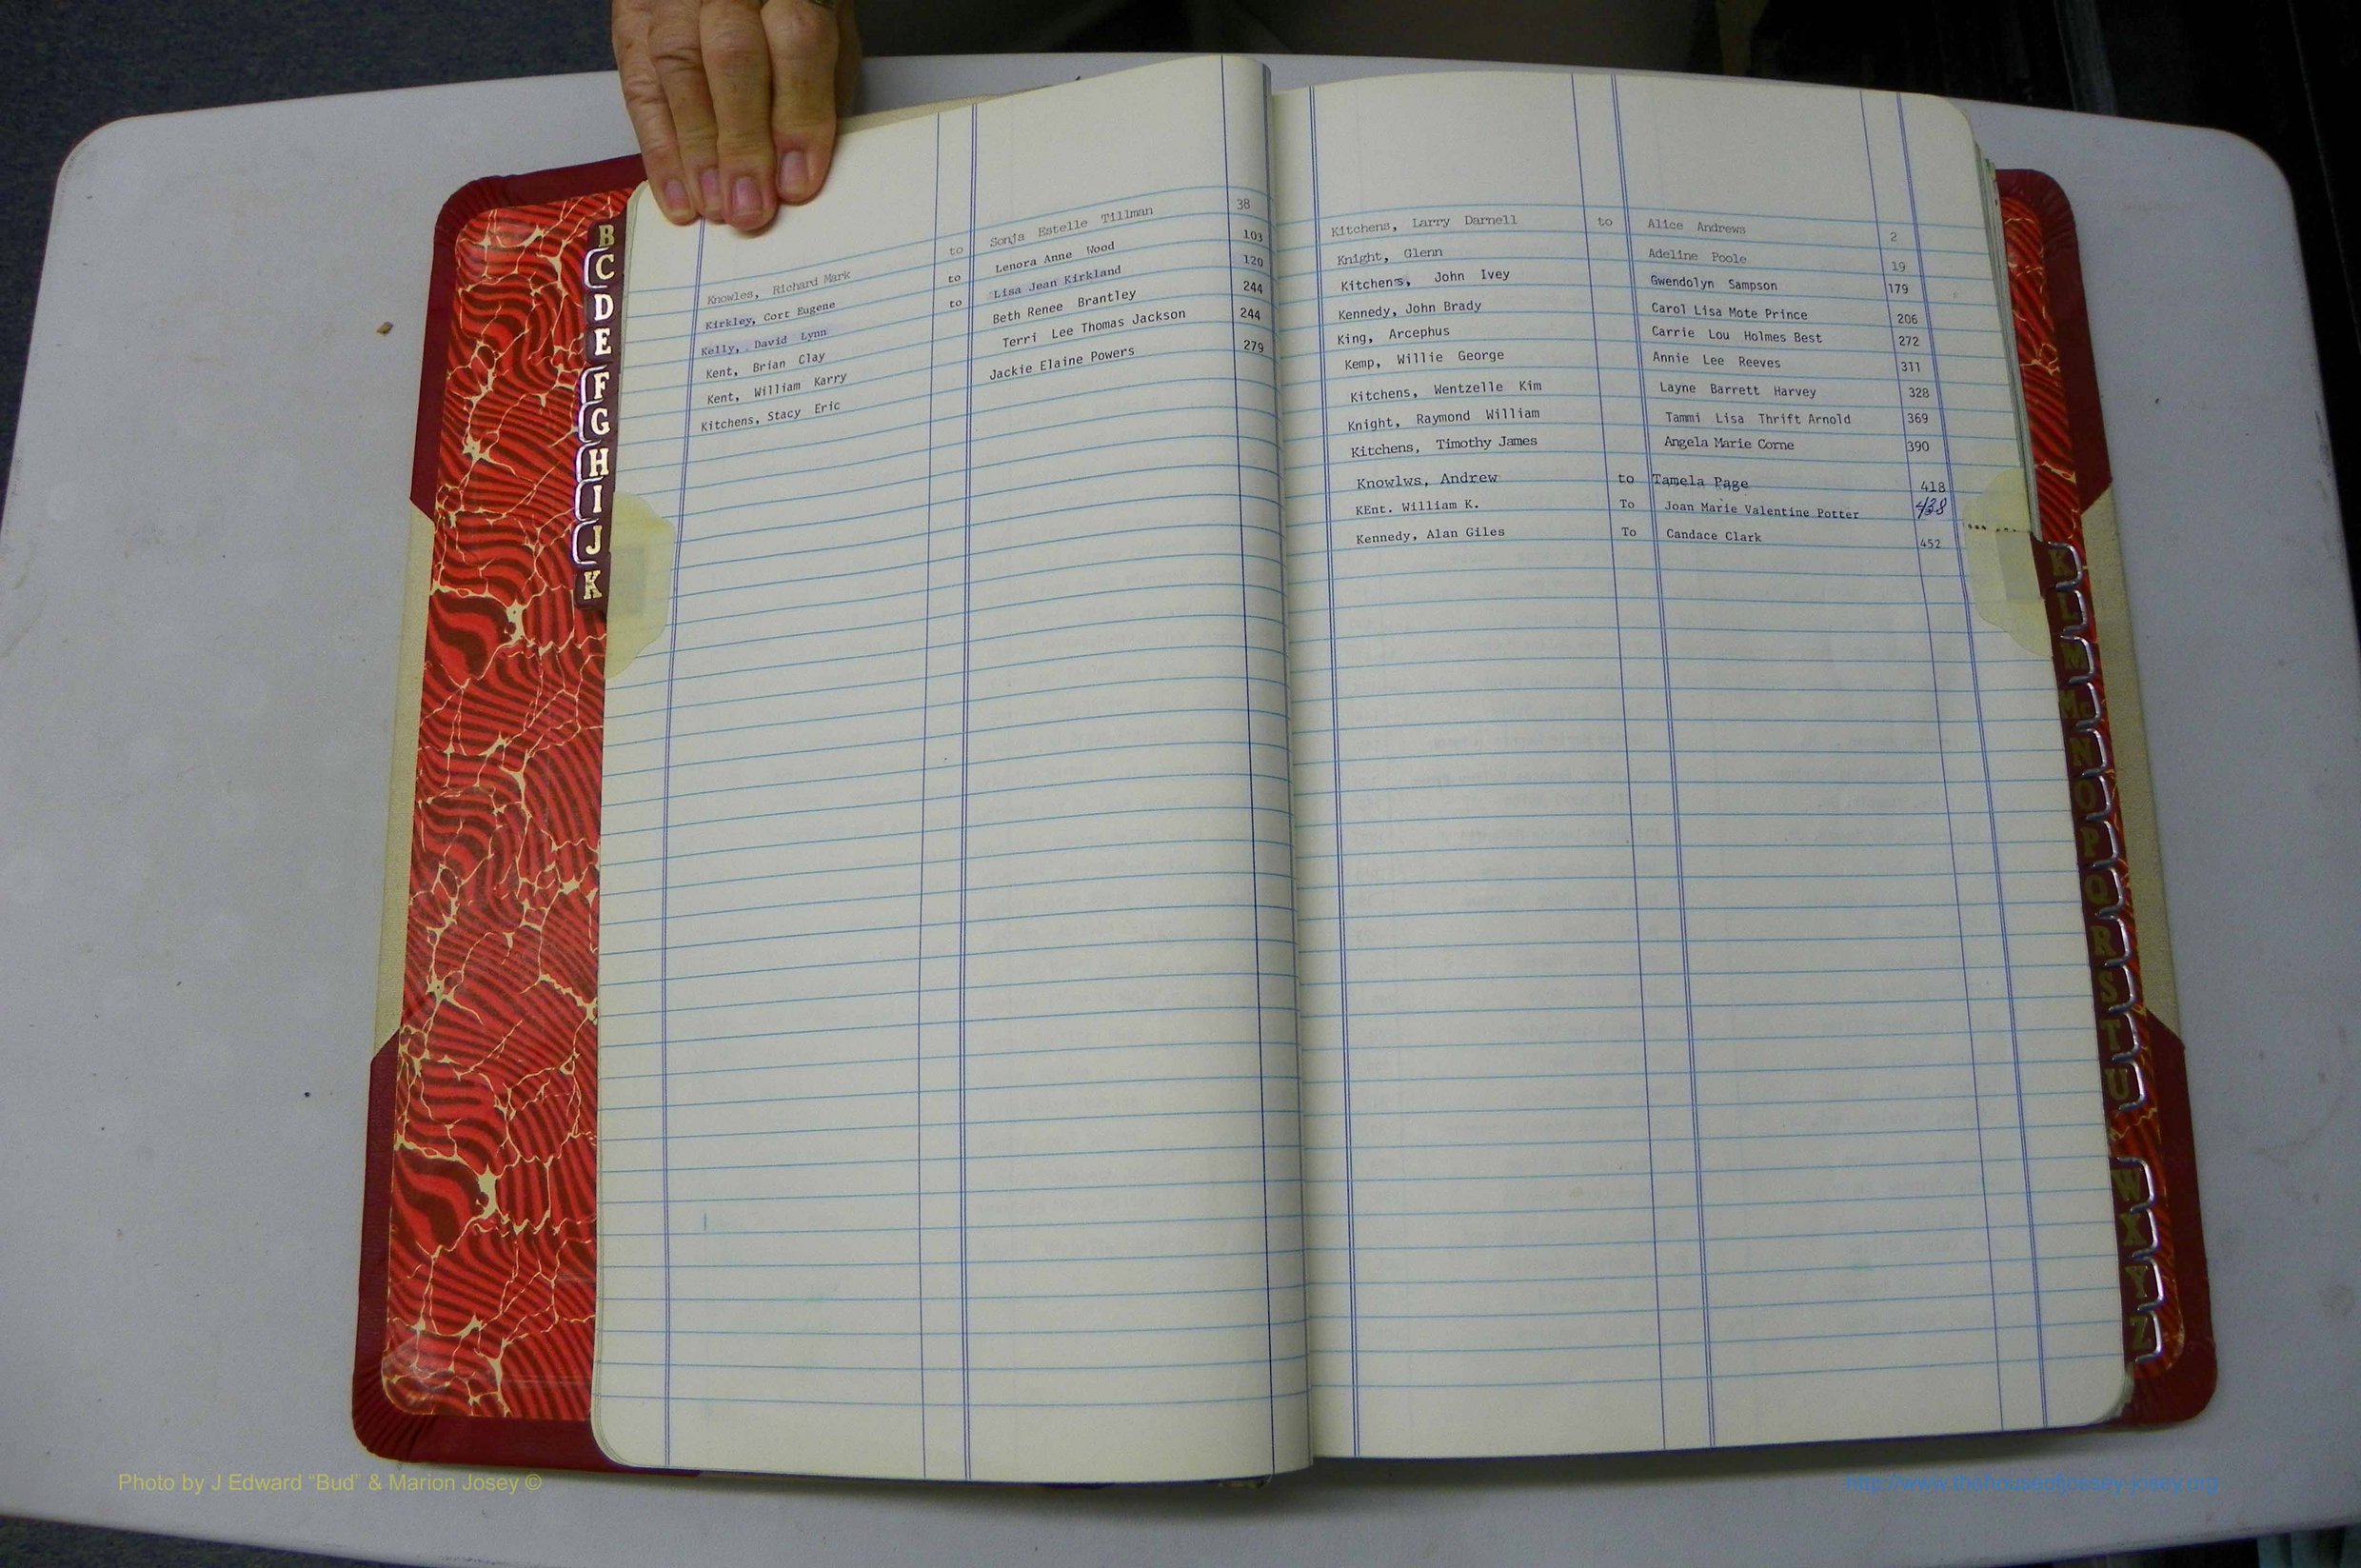 Knowles, Richard Mark to Sonja Estelle Tillman 38
Kirkley, Cort Eugene to Lenora Anne Wood 103
Kelly, David Lynn to Lisa Jean Kirkland 120
Kent, Brian Clay Beth Renee Brantley 244
Kent, William Karry Terri Lee Thomas Jackson 244
Kitchens, Stacy Eric Jackie Elaine Powers 279
Kitchens, Larry Darnell to Alice Andrews 2
Knight, Glenn Adeline Poole 19
Kitchens, John Ivey Gwendolyn Sampson 179
Kennedy, John Brady Carol Lisa Mote Prince 206
King, Arcephus Carrie Lou Holmes Best 272
Kemp, Willie George Annie Lee Reeves 311
Kitchens, Wentzelle Kim Layne Barrett Harvey 328
Knight, Raymond William Tammi Lisa Thrift Arnold 369
Kitchens, Timothy James Angela Marie Corne 390
Knowlws, Andrew to Tamela Page 418
KEnt. William K. To Joan Marie Valentine Potter 438
Kennedy, Alan Giles To Candace Clark 452
B
C
D
E
F
G
H
I
J
K
K
L
M
Mc
N
O
P
Q
R
S
T
U
W
X
Y
Z
Photo by J Edward “Bud” & Marion Josey ©
http://www.thehouseofjossey-josey.org